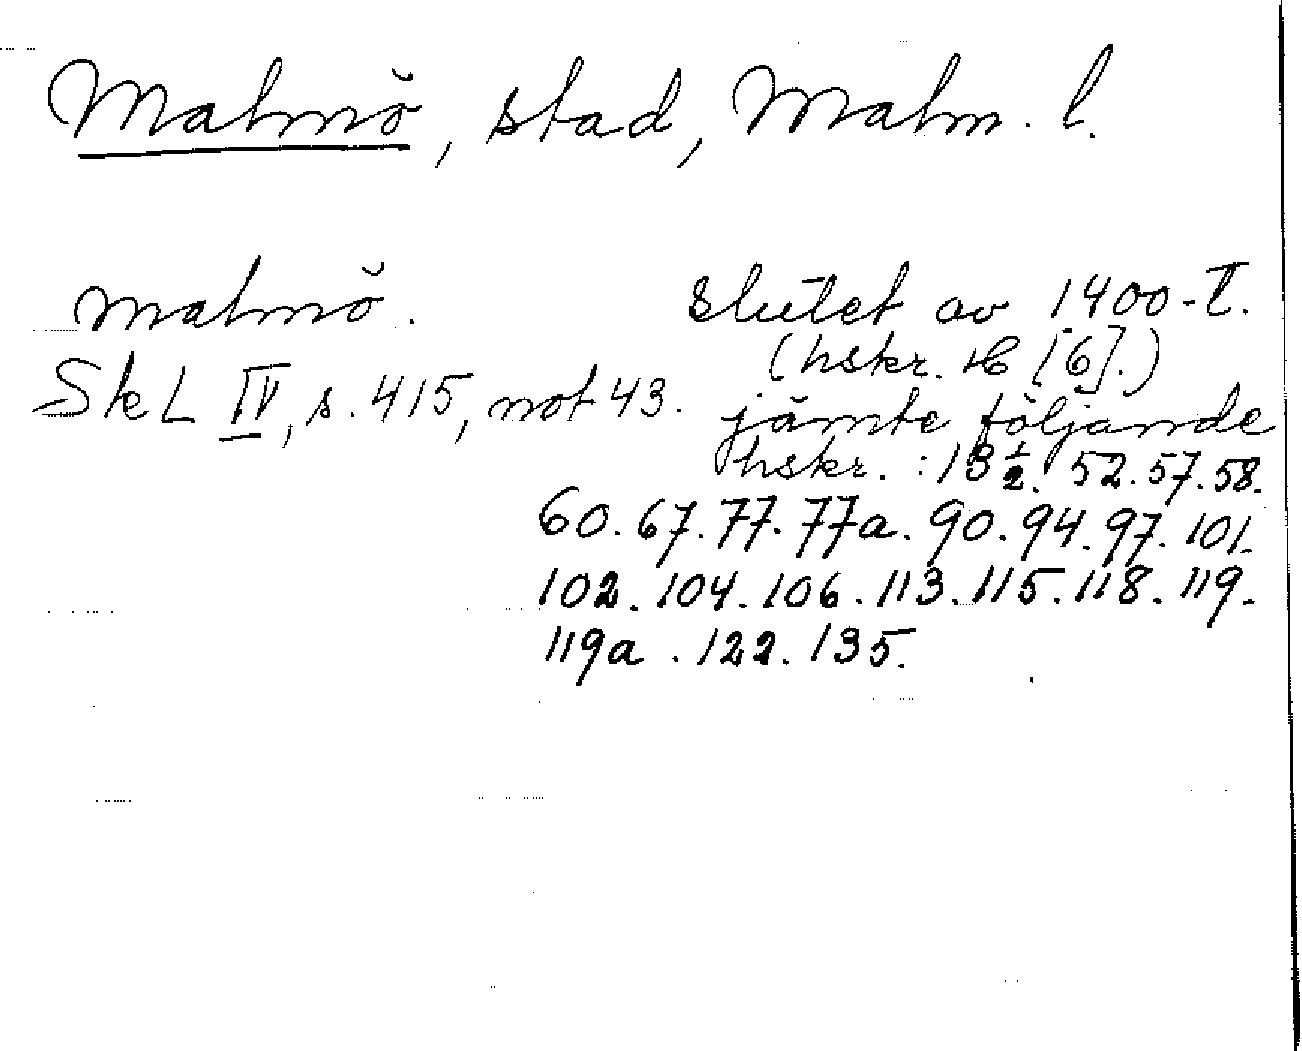 Malmö, stad, Malm. l.
malmö. Slutet av 1400-t.
(hskr. H [6].)
SkL IV, s. 415, not 43. jämte följande
hskr. : 13 1/2. 52. 57. 58.
60. 67. 77. 77a. 90. 94. 97. 101.
102. 104. 106. 113. 115. 118. 119.
119a. 122. 135.